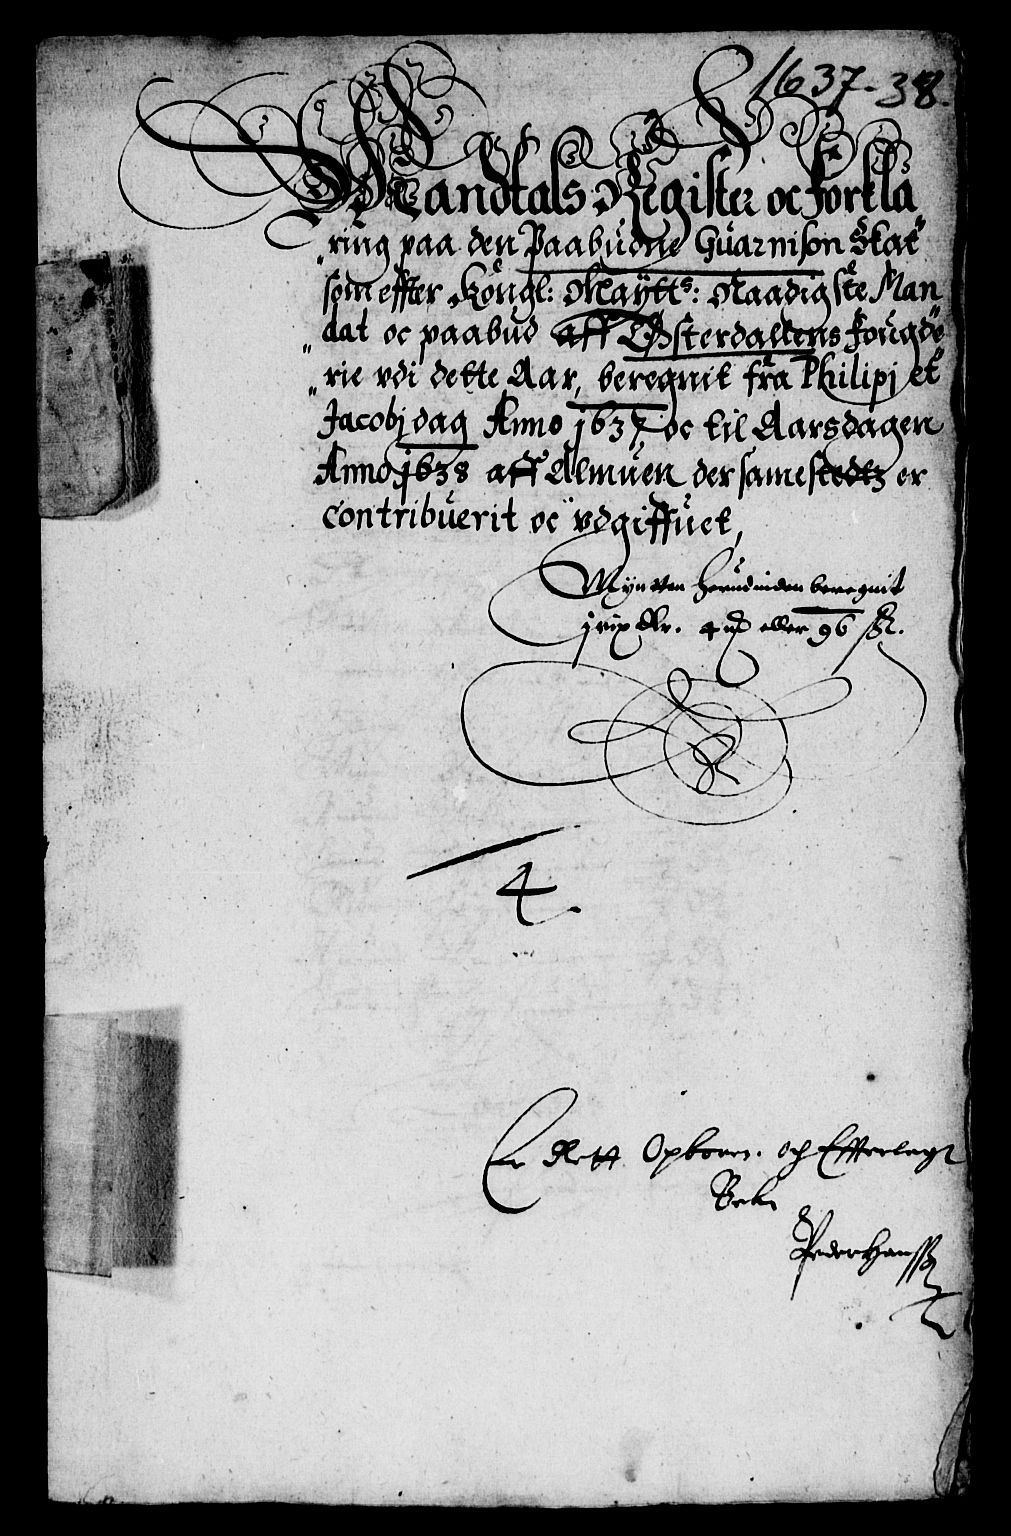 1637-38.
Mandtals Register oc Forkla
"ring paa den Paabudne Guarnison Skat
som effter Kongl: Maÿttz: Naadigste Man
dat oc paabud aff Østerdallens Fougde
"rie vdi dette Aar, beregnit fra Philipj et
Jacobj dag Anno 1637, oc til Aarsdagen
Anno 1638 aff Almuen der samestedtz er
contribuerit oc vdgiffuet,
beregnit
eller 96 ß.
4
Er Rett Opboren och Efterlagt
Peder Hanssß